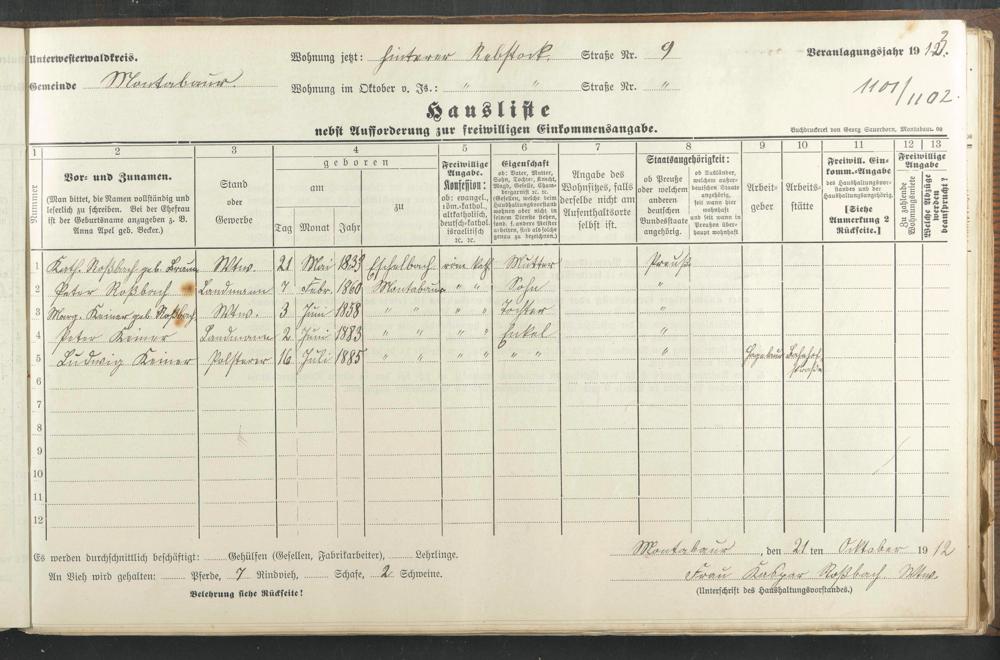 Unterwesterwaldkreis.
Wohnung jetzt: Hinterer Rebstock. Straße Nr. 9
Veranlagungsjahr 1913.
Gemeinde Montabaur.
Wohnung im Oktober v. Js.: " " Straße Nr. "
1101/1102.
Hausliste
nebst Aufforderung zur freiwilligen Einkommensangabe.
Buchdruckerei von Georg Sauerborn, Montabaur.
1 2 3 4 5 6 7 8 9 10 11 12 13
Nummer
Vor- und Zunamen.
(Man bittet, die Namen vollständig und
leserlich zu schreiben. Bei der Ehefrau
ist der Geburtsname anzugeben z. B.
Anna Apel geb. Becker.)
Stand
oder
Gewerbe
geboren
am
zu
Tag Monat Jahr
Freiwillige
Angabe.
Konfession:
ob: evangel.,
röm.-kathol.,
altkatholisch,
deutschkathol.
israelitisch
ec. ec.
Eigenschaft
ob: Vater, Mutter,
Sohn, Tochter, Knecht,
Magd, Geselle, Cham-
bergarnist ec. ec.
(Gesellen, welche beim
Haushaltungsvorstand
wohnen oder nicht in
seinem Dienste stehen,
sond. f. andere Meister
arbeiten, sind als solche
genau zu bezeichnen.)
Angabe des
Wohnsitzes, falls
derselbe nicht am
Aufenthaltsorte
selbst ist.
Staatsangehörigkeit:
ob Preuße
oder welchem
anderen
deutschen
Bundesstaate
angehörig.
ob Ausländer,
welchem außer-
deutschen Staate
angehörig,
seit wann hier
wohnhaft
und seit wann in
Preußen über-
haupt wohnhaft
Arbeit-
geber
Arbeits-
stätte
Freiwill. Ein-
komm.-Angabe
des Haushaltungsvor-
standes und der
Haushaltungsangehörig.
[Siehe
Anmerkung 2
Rückseite.]
Freiwillige
Angabe
Zu zahlende
Wohnungsmiete
Welche Abzüge
werden
beansprucht?
1 Kath. Roßbach geb. Braun Wtw. 21 Mai 1839 Eschelbach röm kath Mutter Preuße
2 Peter Roßbach Landmann 7 Febr. 1860 Montabaur " " Sohn "
3 Marg. Keiner geb. Roßbach Wtw. 3 Juni 1858 " " " " Tochter "
4 Peter Keiner Landmann 2 Juni 1883 " " " " Enkel "
5 Ludwig Keiner Polsterer 16 Juli 1885 " " " " " " " Bahnhof
straße
6
7
8
9
10
11
12
Es werden durchschnittlich beschäftigt: Gehülfen (Gesellen, Fabrikarbeiter), Lehrlinge.
Montabaur, den 21 ten Oktober 1912
An Vieh wird gehalten: Pferde, 7 Rindvieh, Schafe, 2 Schweine.
Frau Kaspar Roßbach Wtw.
Belehrung siehe Rückseite!
(Unterschrift des Haushaltungsvorstandes.)